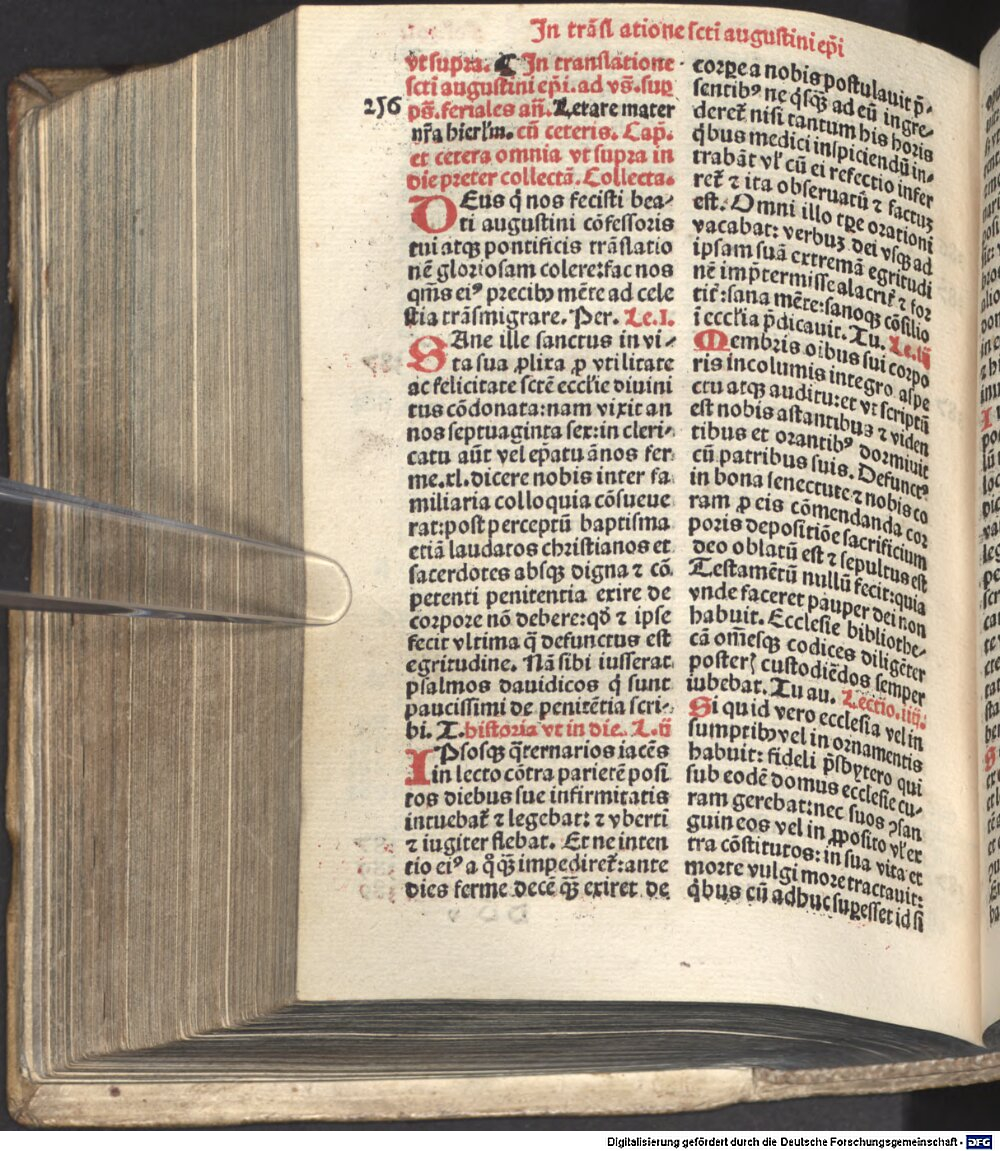 In trãſl atione ſcti auguſtini ep̃i
vt ſupra. ¶ In tranſlatione
ſcti auguſtini ep̃i. ad vs̃. ſup
256
ps̃. feriales añ. Letare mater
nr̃a hierl̃m. cũ ceteris. Cap̃.
et cetera omnia vt ſupra in
die preter collectã. Collecta.
DEus q̃ nos feciſti bea⸗
ti auguſtini cõfeſſoris
tui atqꝫ pontificis trãſlatio
nẽ glorioſam colere: fac nos
qm̃s eiꝰ precibꝰ mẽte ad cele
ſtia trãſmigrare. Per. Le. I.
SAne ille ſanctus in vi⸗
ta ſua ꝓlixa ꝓ vtilitate
ac felicitate ſctẽ eccl̃ie diuini
tus cõdonata: nam vixit an
nos ſeptuaginta ſex: in cleri⸗
catu aũt vel ep̃atu ãnos fer
me. xl. dicere nobis inter fa
miliaria colloquia cõſueue
rat: poſt perceptũ baptiſma
etiã laudatos chriſtianos et
ſacerdotes abſqꝫ digna ⁊ cõ
petenti penitentia exire de
corpore nõ debere: qð ⁊ ipſe
fecit vltima q̃ defunctus eſt
egritudine. Nã ſibi iuſſerat
pſalmos dauidicos q̃ ſunt
pauciſſimi de penitẽtia ſcri⸗
bi. T. hiſtoria vt in die. L. ii
IPſoſqꝫ q̃ternarios iacẽs
in lecto cõtra parietẽ poſi
tos diebus ſue infirmitatis
intuebat̃ ⁊ legebat: ⁊ vberti
⁊ iugiter flebat. Et ne inten
tio eiꝰ a q̃qꝫ̃ impediret̃: ante
dies ferme decẽ qꝫ̃ exiret de
corpe a nobis poſtulauit p̃⸗
ſentibꝰ ne q̃ſqꝫ̃ ad eũ ingre⸗
deret̃ niſi tantum his horis
q̃bus medici inſpiciendũ in⸗
trabãt vl̃ cũ ei refectio infer
ret̃ ⁊ ita obſeruatũ ⁊ factuꝫ
eſt. Omni illo tꝑe orationi
vacabat: verbuꝫ dei vſqꝫ ad
ipſam ſuã extremã egritudi
nẽ imp̃termiſſe alacrit̃ ⁊ for
tit̃: ſana mẽte: ſanoqꝫ cõſilio
ĩ eccl̃ia p̃dicauit. Tu. Le. iii
Membris oĩbus ſui corpo
ris incolumis integro aſpe
ctu atqꝫ auditu: et vt ſcriptũ
eſt nobis aſtantibus ⁊ viden
tibus et orantibꝰ dormiuit
cũ patribus ſuis. Defunctꝰ
in bona ſenectute: ⁊ nobis co
ram ꝓ eis cõmendanda cor
poris depoſitiõe ſacrificium
deo oblatũ eſt ⁊ ſepultus eſt
Teſtamẽtũ nullũ fecit: quia
vnde faceret pauper dei non
habuit. Eccleſie bibliothe⸗
cã om̃eſqꝫ codices diligẽter
poſterꝭ cuſtodiẽdos ſemper
iubebat. Tu au. Lectio. iiij.
Si quid vero eccleſia vel in
ſumptibꝰ vel in ornamentis
habuit: fideli p̃ſbytero qui
ſub eodẽ domus eccleſie cu⸗
ram gerebat: nec ſuos ꝯſan
guineos vel in ꝓpoſito vl̃ ex
tra cõſtitutos: in ſua vita et
morte vulgi more tractauit:
q̃bus cũ adhuc ſupeſſet id ſi
Digitalisierung gefördert durch die Deutsche Forschungsgemeinschaft - DFG